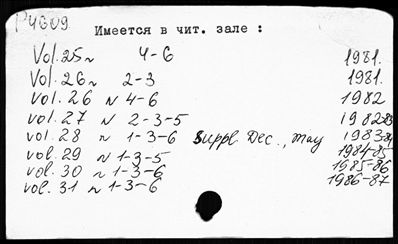 P4609
Имеется в чит. зале :
Vol. 25 N 4-6 1981.
Vol. 26 N 2-3 1981.
vol. 26 N 4-6 1982
vol. 27 N 2-3-5 1982-83
vol. 28 N 1-3-6 Suppl. Dec., may 1983-84
vol. 29 N 1-3-5 1984-85
vol. 30 N 1-3-6 1985-86
vol. 31 N 1-3-6 1986-87